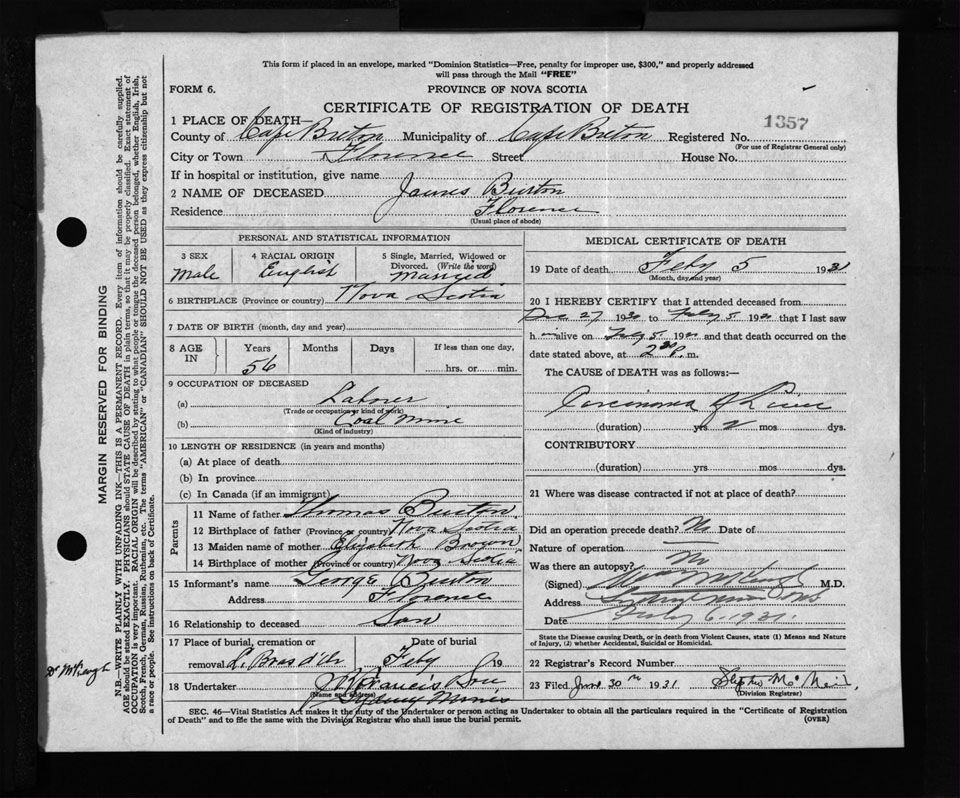 This form if placed in an envelope, marked "Dominion Statistics—Free, penalty for improper use, $300," and properly addressed
will pass through the Mail "FREE"
FORM 6.
PROVINCE OF NOVA SCOTIA
CERTIFICATE OF REGISTRATION OF DEATH
1 PLACE OF DEATH—
1357
County of Cape Breton Municipality of Cape Breton Registered No.
(For use of Registrar General only)
City or Town Florence Street House No.
If in hospital or institution, give name
2 NAME OF DECEASED James Burton
Residence Florence
(Usual place of abode)
PERSONAL AND STATISTICAL INFORMATION
3 SEX 4 RACIAL ORIGIN 5 Single, Married, Widowed or
Divorced. (Write the word)
Male English Married
6 BIRTHPLACE (Province or country) Nova Scotia
7 DATE OF BIRTH (month, day and year)
8 AGE IN Years Months Days If less than one day,
56 hrs. or min.
9 OCCUPATION OF DECEASED
(a) Laborer
(Trade or occupation or kind of work)
(b) Coal Mine
(Kind of industry)
10 LENGTH OF RESIDENCE (in years and months)
(a) At place of death
(b) In province
(c) In Canada (if an immigrant)
Parents
11 Name of father Thomas Burton
12 Birthplace of father (Province or country) Nova Scotia
13 Maiden name of mother Elizabeth Brown
14 Birthplace of mother (Province or country) Nova Scotia
15 Informant's name George Burton
Address Florence
16 Relationship to deceased Son
17 Place of burial, cremation or Date of burial
removal L. Bras d'Or Feby 19
18 Undertaker Francis
(Name and address) Sydney Mines
MEDICAL CERTIFICATE OF DEATH
19 Date of death Feby 5 1931
(Month, day and year)
20 I HEREBY CERTIFY that I attended deceased from
Dec 27 1930 to Feby 5 19 that I last saw
h im alive on Feby 5 19 and that death occurred on the
date stated above, at 2 P. m.
The CAUSE of DEATH was as follows:—
Carcinoma of Liver
(duration) yrs 2 mos dys.
CONTRIBUTORY
(duration) yrs mos dys.
21 Where was disease contracted if not at place of death?
Did an operation precede death? No Date of
Nature of operation —
Was there an autopsy? No
(Signed) M.D.
Address Sydney Mines NS
Date Feby 6. 1931.
State the Disease causing Death, or in death from Violent Causes, state (1) Means and Nature
of Injury, (2) whether Accidental, Suicidal or Homicidal.
22 Registrar's Record Number
23 Filed June 30th 1931 Stephen McNeil
(Division Registrar)
SEC. 46—Vital Statistics Act makes it the duty of the Undertaker or person acting as Undertaker to obtain all the particulars required in the "Certificate of Registration
of Death" and to file the same with the Division Registrar who shall issue the burial permit.
(OVER)
MARGIN RESERVED FOR BINDING
N.B.—WRITE PLAINLY WITH UNFADING INK—THIS IS A PERMANENT RECORD. Every item of information should be carefully supplied.
AGE should be stated EXACTLY. PHYSICIANS should STATE CAUSE OF DEATH in plain terms, so that it may be properly classified. Exact statement of
OCCUPATION is very important. RACIAL ORIGIN will be described by stating to what people or tongue the deceased person belonged, whether English, Irish,
Scotch, French, German, Russian, Ruthenian, etc. The terms "AMERICAN" or "CANADIAN" SHOULD NOT BE USED as they express citizenship but not
a race or people. See instructions on back of Certificate.
Dr McKeough